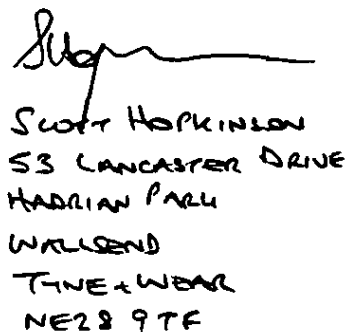 SCOTT HOPKINSON
53 LANCASTER DRIVE
HADRIAN PARK
WALLSEND
TYNE + WEAR
NE28 9TF